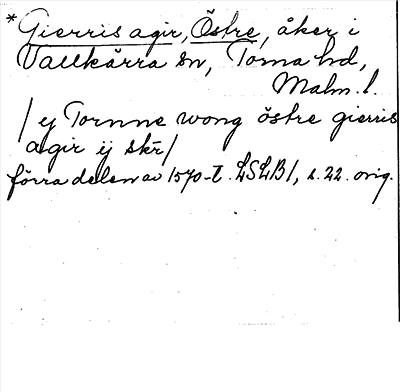 * Gierris agir, Östre, åker i
Vallkärra sn, Torna hd,
Malm. l.
/ ej Tornne wong östre gierris
agir ij skr̄ /
förra delen av 1570-t. LSLB 1, s. 22. orig.